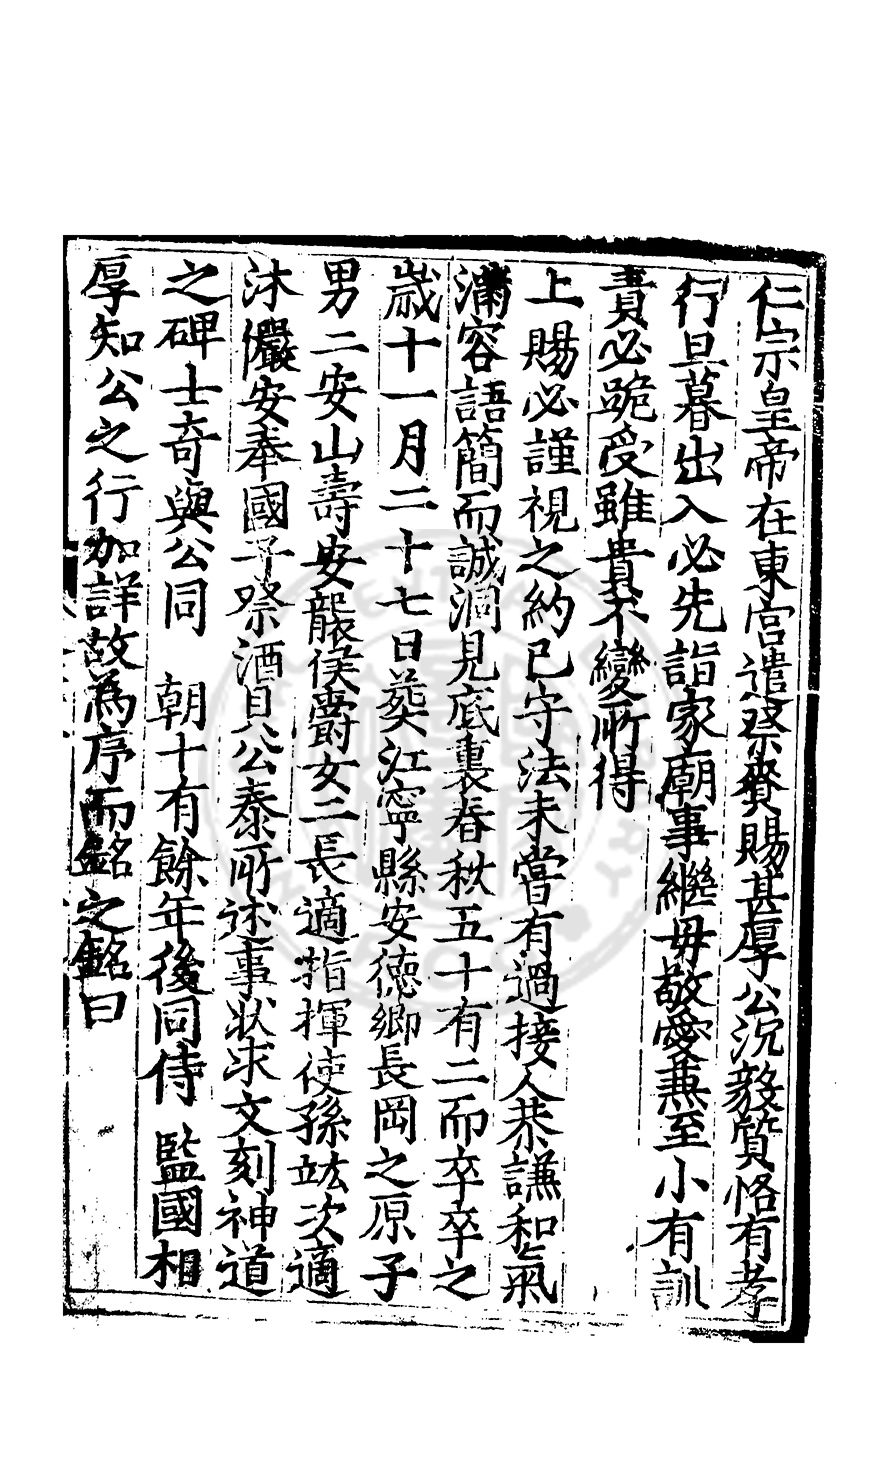 仁宗皇帝在東宫遣祭賚賜甚厚公沉毅質恪有孝
行旦暮出入必先詣家廟事繼母敬愛兼至小有訓
責必跪受雖貴不變所得
上賜必謹視之約已守法未嘗有過接人恭謙和氣
滿容語簡而誠洞見底裏春秋五十有二而卒卒之
歳十一月二十七日葬江寧縣安德鄉長岡之原子
男二安山壽安襲侯爵女二長適指揮使孫竑次適
沐儼安奉國子祭酒貝公泰所述事狀求文刻神道
之碑士奇與公同　朝十有餘年後同侍　監國相
厚知公之行加詳故為序而銘之銘曰
CENTRAL LIBRARY